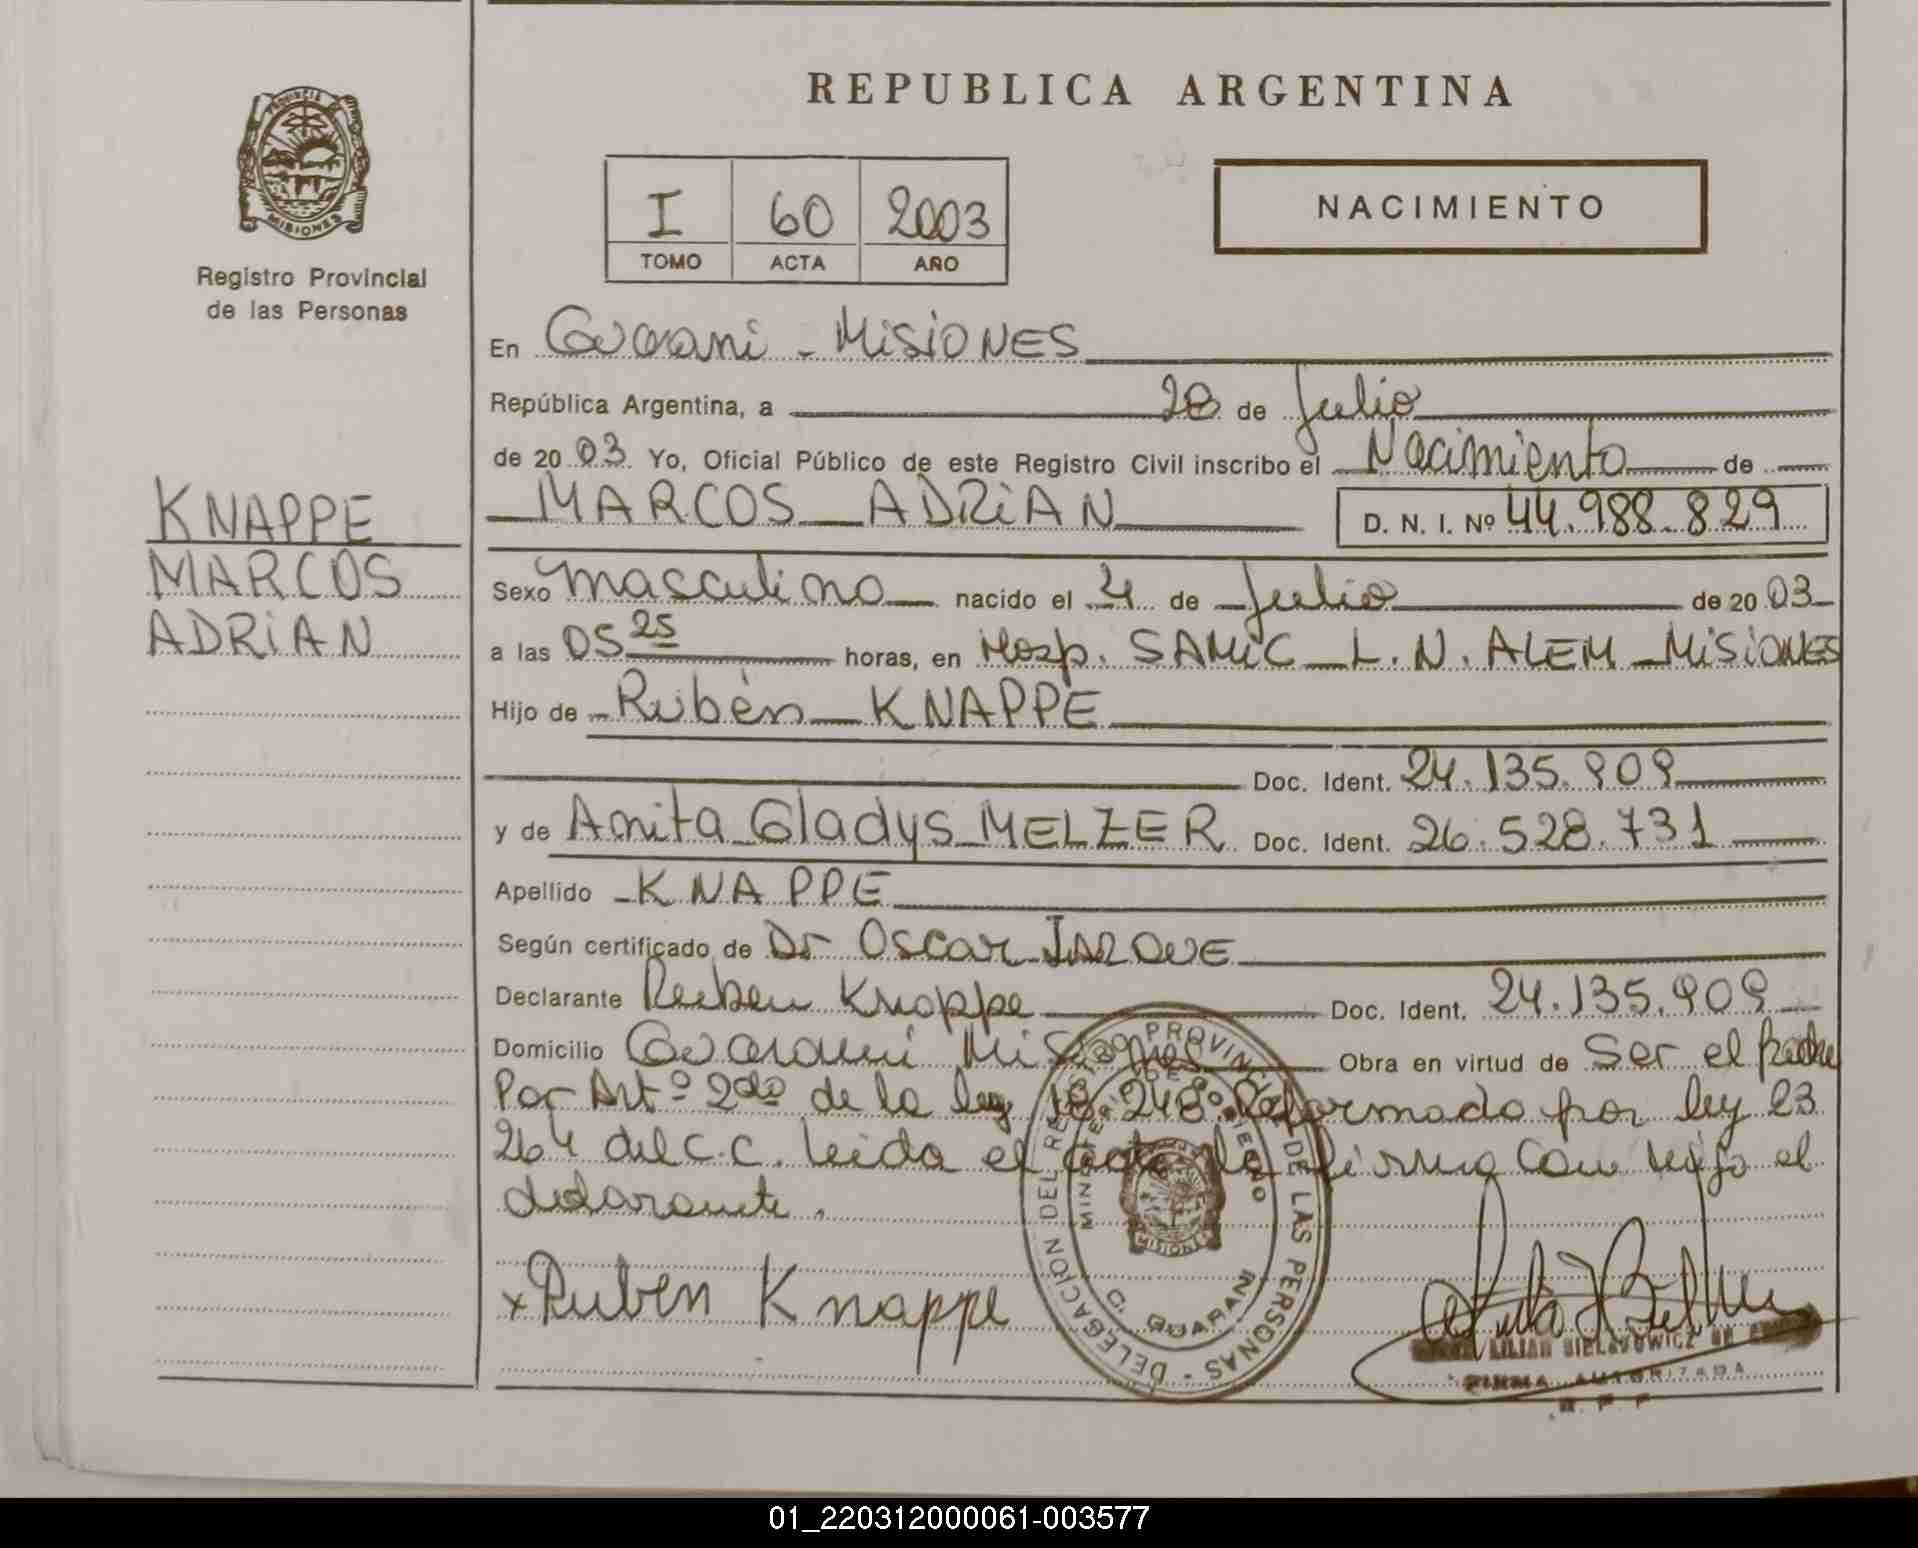 REPUBLICA ARGENTINA
PROVINCIA DE
MISIONES
Registro Provincial
de las Personas
I 60 2003
TOMO ACTA AÑO
NACIMIENTO
En Guarani - MISIONES
República Argentina, a 28 de Julio
de 2003 Yo, Oficial Público de este Registro Civil inscribo el Nacimiento de
MARCOS ADRIAN D. N. I. Nº 44.988.829
KNAPPE
MARCOS
ADRIAN
Sexo masculino nacido el 4 de Julio de 2003
a las 05 25 horas, en Hosp. SAMIC L. N. ALEM MISIONES
Hijo de Rubén KNAPPE
Doc. Ident. 24.135.909
y de Anita Gladys MELZER Doc. Ident. 26.528.731
Apellido KNAPPE
Según certificado de Dr Oscar JARQUE
Declarante Ruben Knappe Doc. Ident. 24.135.909
Domicilio Guarani Misiones Obra en virtud de Ser el padre
Por Artº 2do de la ley 18.248 Reformado por ley 23
264 del C.C. leida el acta la firma con migo el
declarante.
x Ruben Knappe
DELEGACION DEL REGISTRO PROVINCIAL DE LAS PERSONAS
MINISTERIO DE GOBIERNO
MISIONES
G. GUARANI
LILIAN BIELAKOWICZ DE
FIRMA AUTORIZADA
R. P. P.
01_220312000061-003577